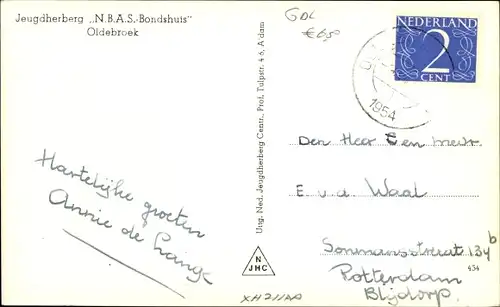 Jeugdherberg „N.B.A.S.-Bondshuis"
Oldebroek
GDL
€65
NEDERLAND
2
CENT
1954
Hartelijke groeten
Annie de
Uitg. Ned. Jeugdherberg Centr., Prof. Tulpstr. 4-6, A'dam
N
JHC
Den Heer en mevr.
E. v.d. Waal
134b
Rotterdam
Blijdorp
454
XH211AA